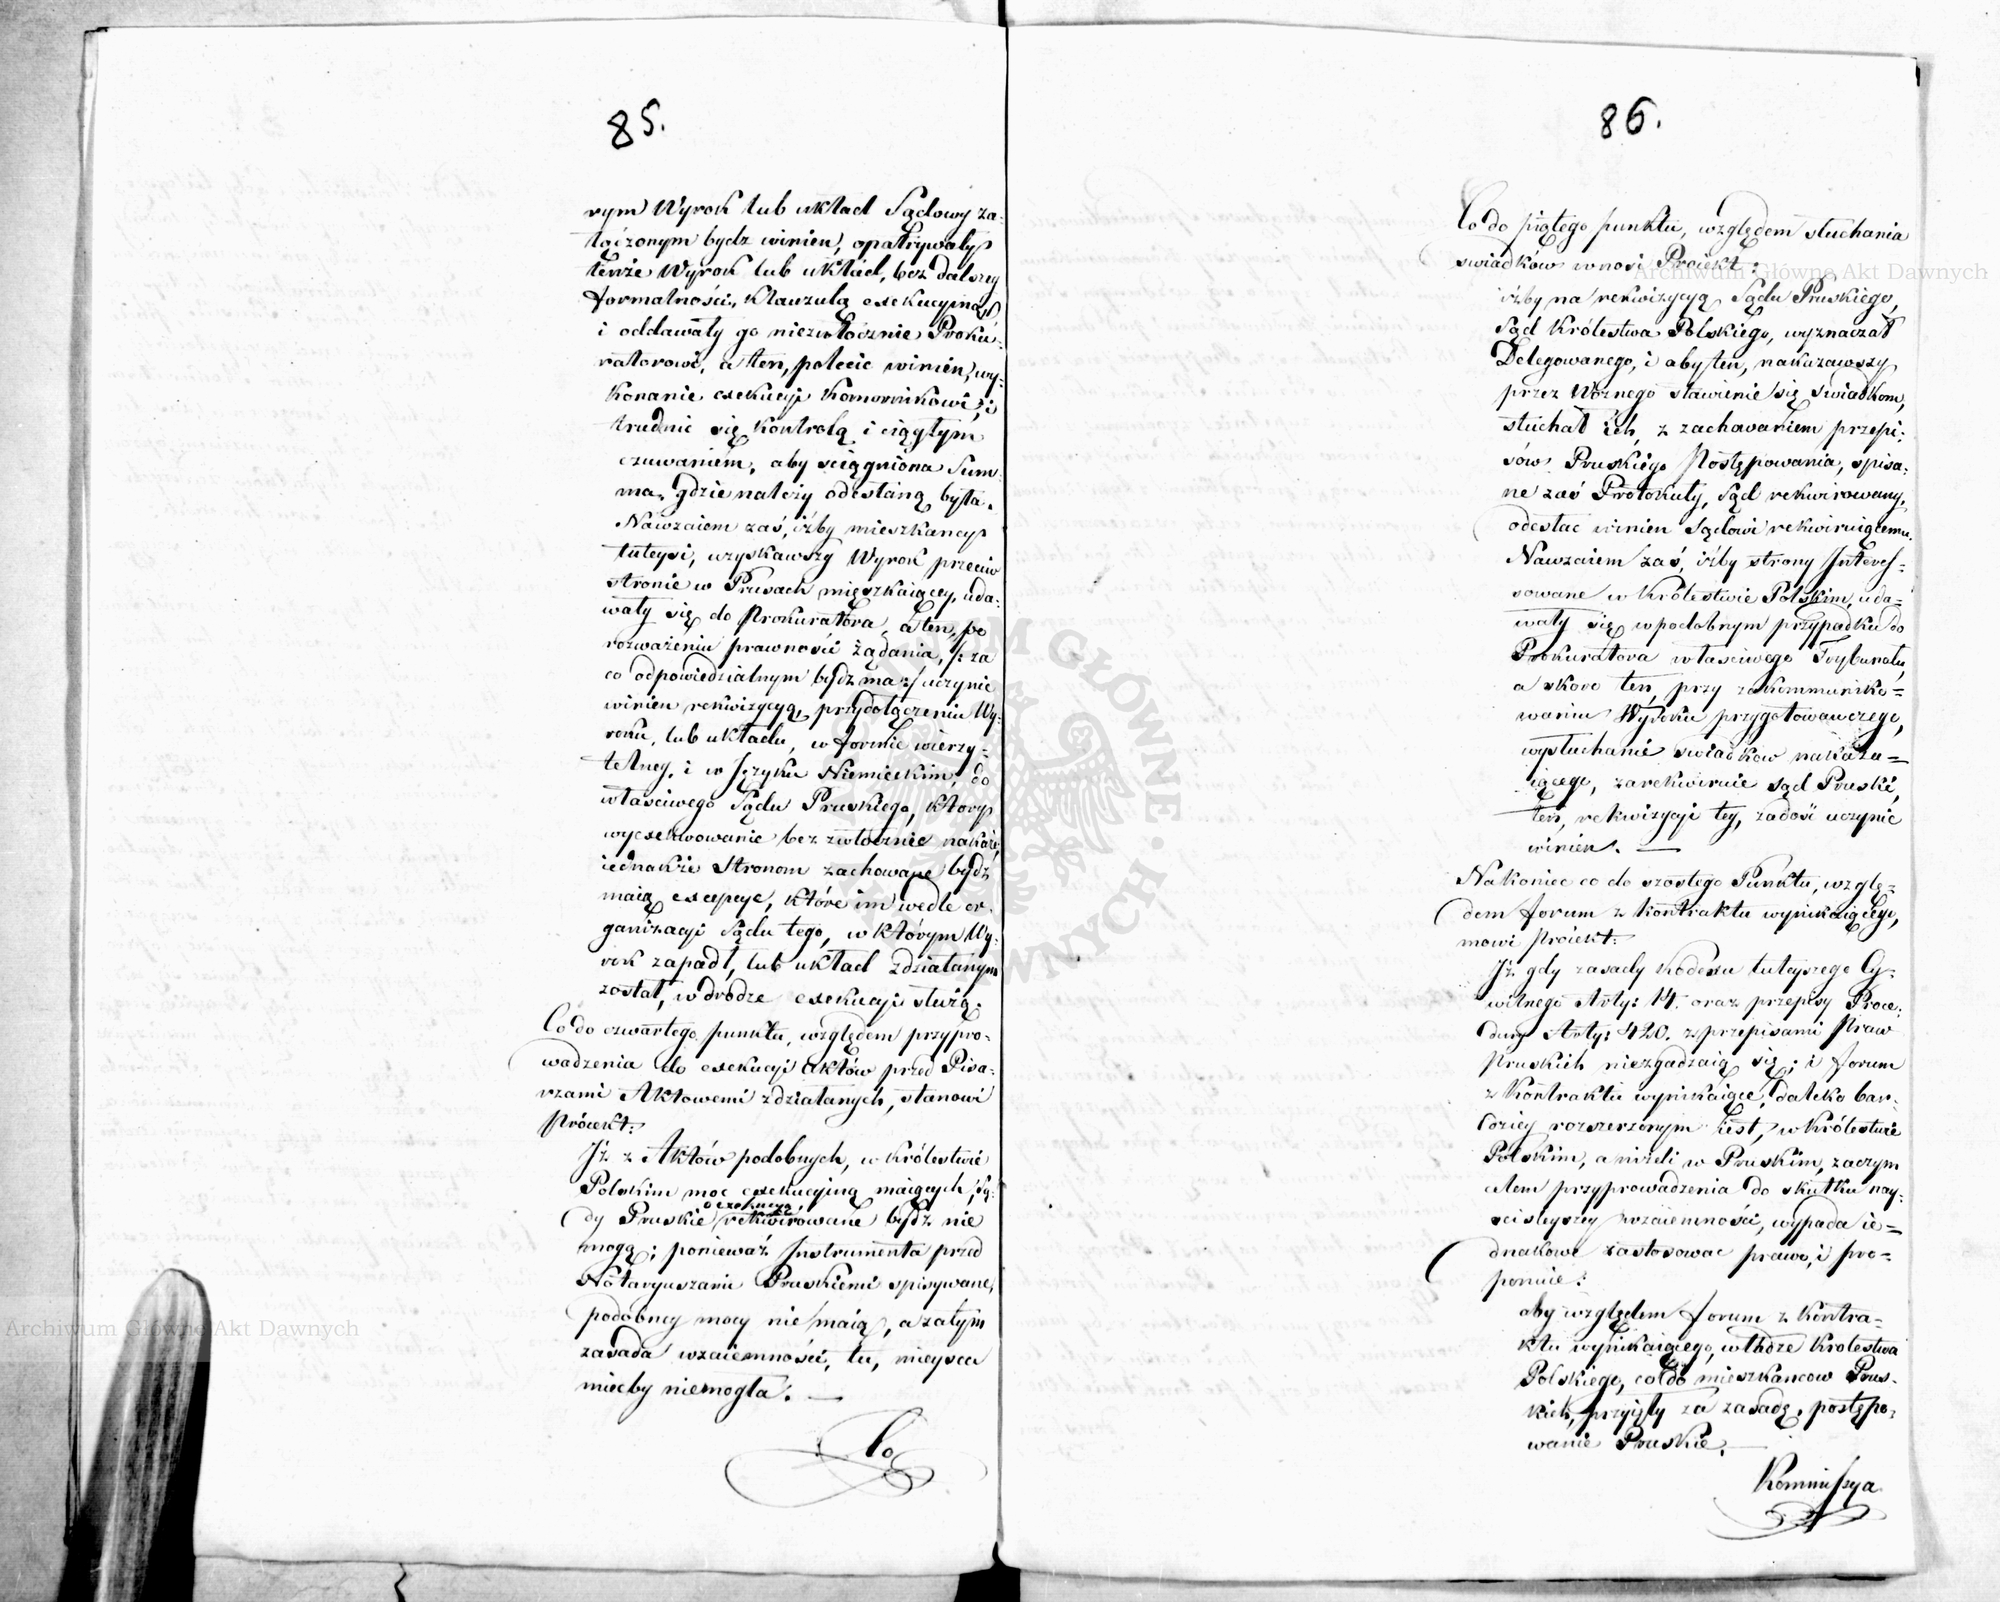 85.
rym Wyrok lub układ Sądowy za-
łączonym bydz winien, opatrywały
tenże Wyrok lub układ, bez dalszey
formalności, klauzulą exekucyiną,
i oddawały go niezwłócznie Proku-
ratorowi, a ten, polecic winien, wy-
konanie exekucyi Komornikowi, i
trudnic się kontrolą i ciągłym
czuwaniem, aby sciągniona Sum-
ma, gdzie należy odesłaną była.
Nawzaiem zaś, iżby mieszkancy
tuteysi, uzyskawszy Wyrok przeciw
stronie w Prusach mięszkaiącey, uda-
wały się do Prokuratora, a ten, po
rozważeniu prawności żądania, /: za
co odpowiedzialnym bydz ma :/ uczynic
winien rekwizycyą, przydołączeniu Wy-
roku, lub układu, w formie wierzy-
telney, i w Języku Niemieckim, do
właściwego Sądu Pruskiego, ktory
wyexekwowanie bezzwłocznie nakaże,
iednakże Stronom zachowane bydź
maią excepcye, które im wedle or-
ganizacyi Sądu tego, w którym Wy-
rok zapadł, lub układ zdziałanym
został, w drodze exekucyi służą.
Co do czwartego punktu, względem przypro-
wadzenia do exekucyi Aktów przed Pisa-
rzami Aktowemi zdziałanych, stanowi
Proiekt:
Iż z Aktów podobnych, w Królestwie
Polskim moc exekucyiną maiących, Są-
dy Pruskie rekwirowane bydź nie
mogą; ponieważ Instrumenta przed
Notaryuszami Pruskiemi spisywane,
podobney mocy nie maią, a zatym
zasada wzaiemności, tu, mieysca
miecby niemogła. —
Co
86.
Co do piątego punktu, względem słuchania
swiadków wnosi Proiekt:
iżby na rekwizycyą Sądu Pruskiego,
Sąd Królestwa Polskiego, wyznaczał
Delegowanego, i aby ten, nakazawszy
przez Woznego stawienie się swiadkom,
słuchał ich, z zachowaniem przepi-
sów Pruskiego Postępowania, spisa-
ne zaś Protokuły, Sąd rekwirowany,
odesłac winien Sądowi rekwiruiącemu.
Nawzaiem zaś, iżby strony Interes-
sowane w Królestwie Polskim, uda-
wały się w podobnym przypadku do
Prokuratora właściwego Trybunału,
a skoro ten, przy zakommuniko-
waniu Wyroku przygotowawczego,
wysłuchanie swiadków nakazu-
iącego, zarekwiruie Sąd Pruski,
ten, rekwizycyi tey, zadość uczynic
winien. —
Nakoniec co do szostego Punktu, wzglę-
dem forum z kontraktu wynikaiącego,
mowi Proiekt:
Iż gdy zasady Kodexu tuteyszego Cy-
wilnego Arty: 14. oraz przepisy Proce-
dury Arty: 420. z przepisami Praw
Pruskich niezgadzaią się; i forum
z kontraktu wynikaiące, daleko bar-
dziey rozszerzonym iest, w Królestwie
Polskim, aniżeli w Pruskim, zaczym
celem przyprowadzenia do skutku nay-
scisleyszey wzaiemności, wypada ie-
dnakowe zastosowac prawo, i pro-
ponuie:
aby względem forum z Kontra-
ktu wynikaiącego, władze Krolestwa
Polskiego, co do mieszkancow Prus-
kich, przyięły za zasadę, postępo-
wanie Pruskie. —
Kommissya
Archiwum Główne Akt Dawnych
Archiwum Główne Akt Dawnych